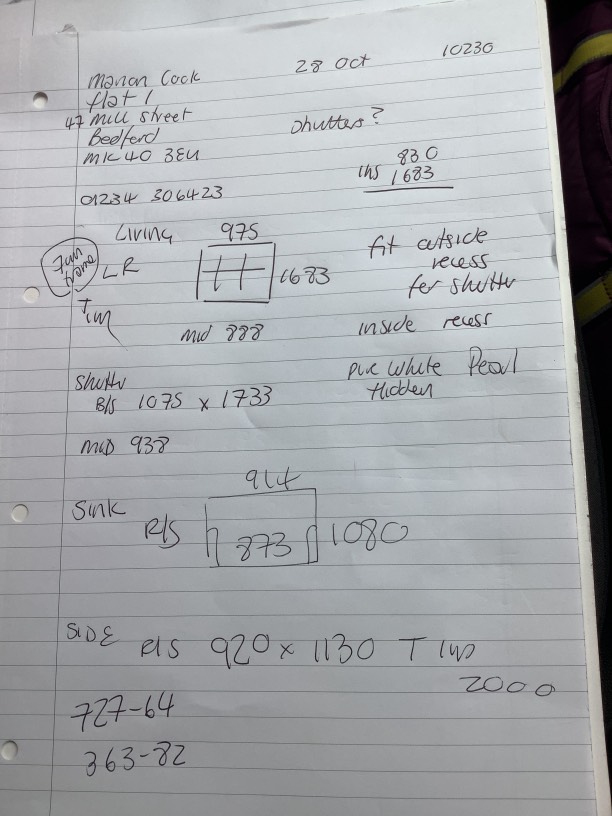 28 Oct 10230
Marion Cook
flat 1
47 Mill Street
Bedford
MK40 3EU
Shutters?
830
Ins 1683
01234 306423
Living 975
LR 1683
fit outside
recess
for shutter
mid 888
inside recess
Shutter
B/S 1075 x 1733
pvc white Pearl
Hidden
mid 938
914
Sink
R/S 873 1080
SIDE R/S 920 x 1130 T
2000
727-64
363-82